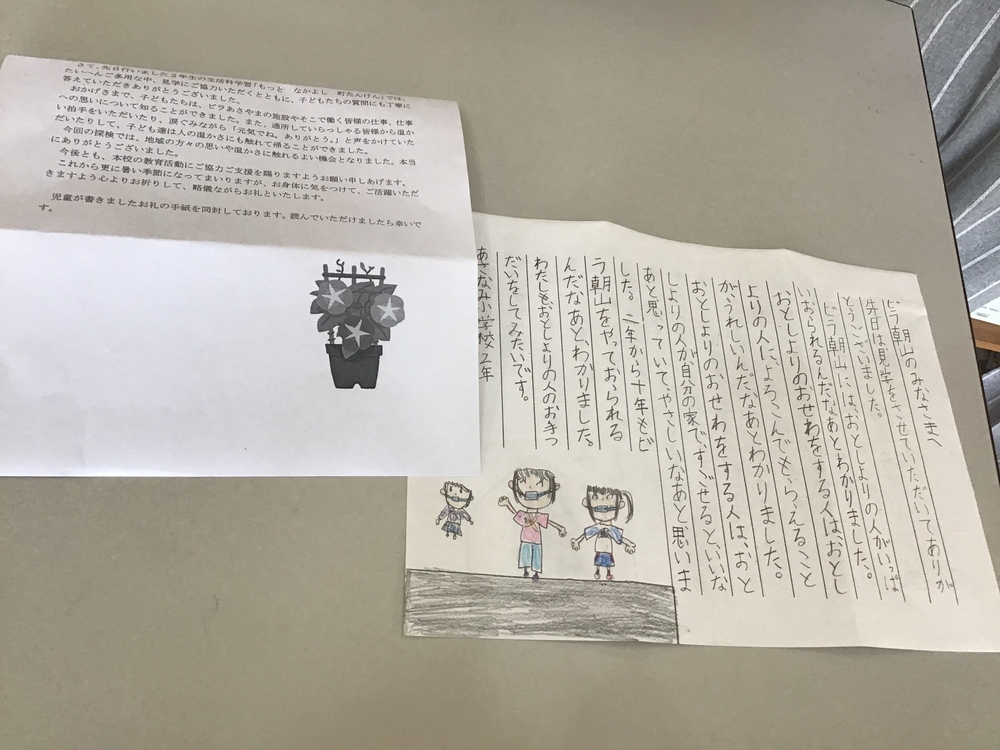 さて、先日行いました２年生の生活科学習「もっと　なかよし　町たんけん」では、
たいへんご多用な中、見学にご協力いただくとともに、子どもたちの質問にも丁寧に
答えていただきありがとうございました。
おかげさまで、子どもたちは、ビラあさやまの施設やそこで働く皆様の仕事、仕事
への思いについて知ることができました。また、通所していらっしゃる皆様から温か
い拍手をいただいたり、涙ぐみながら「元気でね。ありがとう。」と声をかけていた
だいたりして、子ども達は人の温かさにも触れて帰ることができました。
今回の探検では、地域の方々の思いや温かさに触れるよい機会となりました。本当
にありがとうございました。
今後とも、本校の教育活動にご協力ご支援を賜りますようお願い申しあげます。
これから更に暑い季節になってまいりますが、お身体に気をつけて、ご活躍いただ
きますよう心よりお祈りして、略儀ながらお礼といたします。
児童が書きましたお礼の手紙を同封しております。読んでいただけましたら幸いで
す。
ビラ朝山のみなさまへ
先日は見学をさせていただいてありが
とうございました。
ビラ朝山には、おとしよりの人がいっぱ
いおられるんだなあとわかりました。
おとしよりのおせわをする人は、おとし
よりの人に、よろこんでもらえること
がうれしいんだなあとわかりました。
おとしよりのおせわをする人は、おと
しよりの人が自分の家ですごせるといいな
あと思っていて、やさしいなあと思いま
した。二年から十年もビ
ラ朝山をやっておられる
んだなあとわかりました。
わたしもおとしよりの人のお手つ
だいをしてみたいです。
あさなみ小学校２年